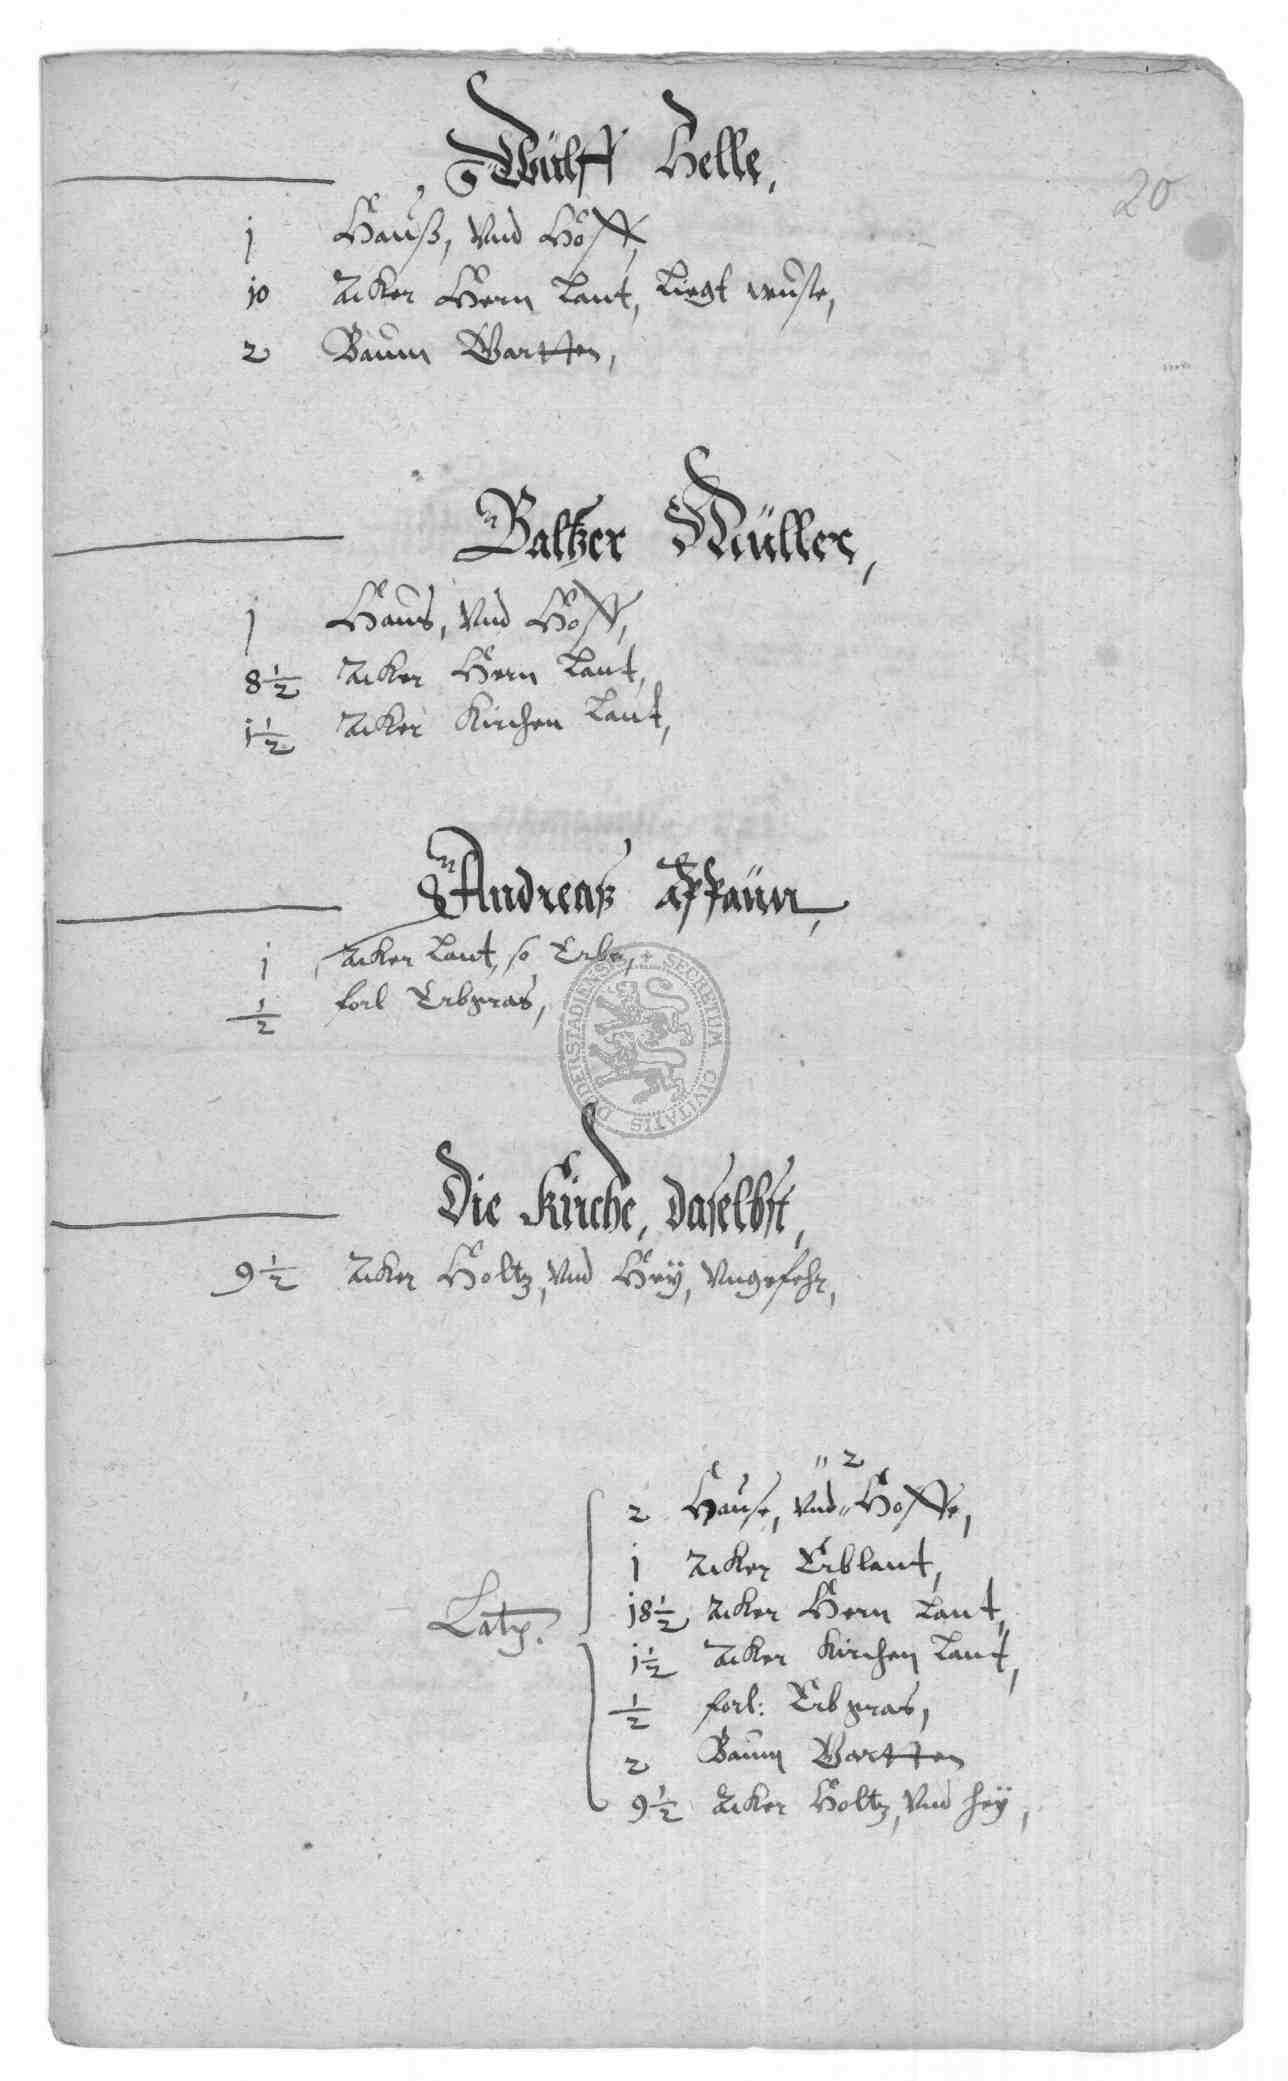 Wülff Helle,
20
j Hauß, vnd Hoff,
jo Acker Hern Lant, Liegt wuste,
2 Baum Gartten,
Baltzer Müller,
j Haus, vnd Hoff,
8 1/2 Acker Hern Lant,
j 1/2 Acker Kirchen Lant,
Andreaß
j Acker Lant, so Erbe,
1/2 forl Erbgras,
SECRETUM CIVITATIS DUDERSTADIENSIS
Die Kirche, daselbst,
9 1/2 Acker Holtz, vnd Hey, vngefehr,
" 2
2 Hause, vnd " Hoffe,
j Acker Erblant,
Latq.
j8 1/2 Acker Hern Lant,
j 1/2 Acker Kirchen Lant,
1/2 forl: Erbgras,
2 Baum Gartten
9 1/2 Acker Holtz, vnd hey,